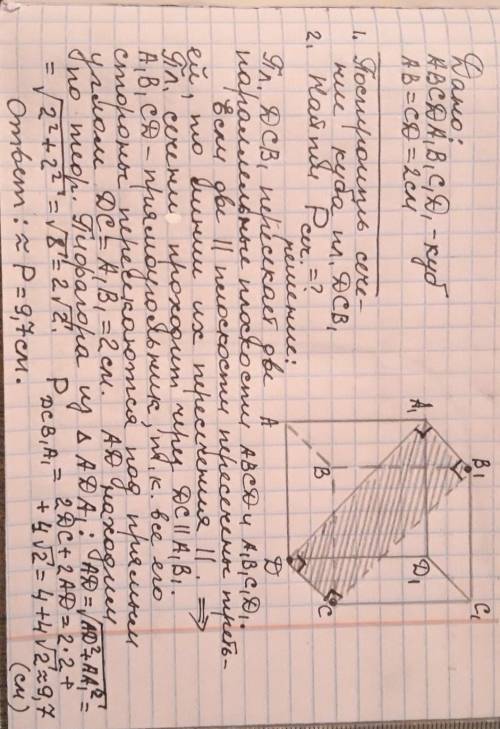 Дано:
ABCDA₁B₁C₁D₁ - куб
AB = CD = 2см
1. Построить сече-
ние куба пл. DCB₁
2. Найти Pсеч. = ?
решение:
Пл. DCB₁ пересекает две
параллельные плоскости ABCD и A₁B₁C₁D₁.
Если две || плоскости пересечены треть-
ей, то линии их пересечения ||. ⇒
Пл. сечения проходит через DC || A₁B₁.
A₁B₁CD - прямоугольник, т.к. все его
стороны пересекаются под прямым
углом DC = A₁B₁ = 2см. AD находим
по теор. Пифагора из △ ADA₁: AD = √AD² + AA₁² =
= √2² + 2² = √8 = 2√2. P DCB₁A₁ = 2DC + 2AD = 2·2 +
+ 4√2 = 4 + 4√2 ≈ 9,7
(см)
Ответ: ≈ P = 9,7см.
A₁
B₁
C₁
D₁
A
B
C
D